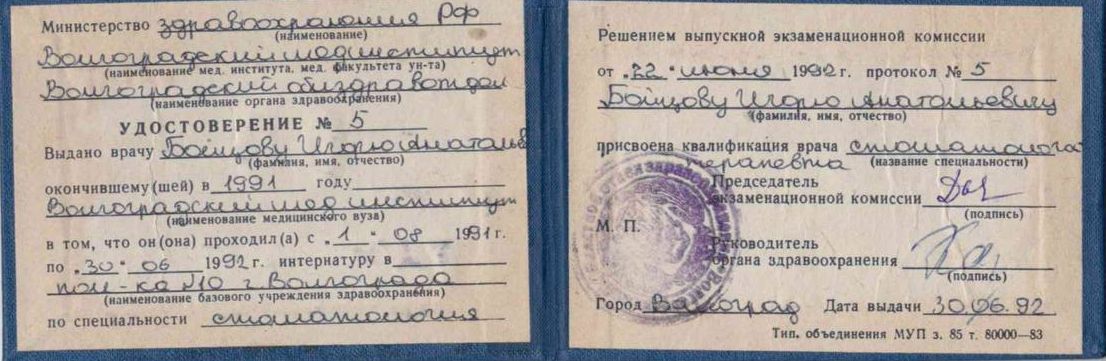 Министерство здравоохранения РФ
(наименование)
Волгоградский мединститут
(наименование мед. института, мед. факультета ун-та)
Волгоградский облздравотдел
(наименование органа здравоохранения)
УДОСТОВЕРЕНИЕ № 5
Выдано врачу Бойцову Игорю Анатолье
(фамилия, имя, отчество)
окончившему(шей) в 1991 году
Волгоградский мединститут
(наименование медицинского вуза)
в том, что он(она) проходил(а) с „1“ 08 1991г.
по „30“ 06 1992г. интернатуру в
пол-ка №10 г. Волгограда
(наименование базового учреждения здравоохранения)
по специальности стоматология
Решением выпускной экзаменационной комиссии
от „22“ июня 1992г. протокол № 5
Бойцову Игорю Анатольевичу
(фамилия, имя, отчество)
присвоена квалификация врача стоматолога
терапевта (название специальности)
Председатель
экзаменационной комиссии
(подпись)
М. П.
Руководитель
органа здравоохранения
(подпись)
Город Волгоград Дата выдачи 30.06.92
Тип. объединения МУП з. 85 т. 80000—83